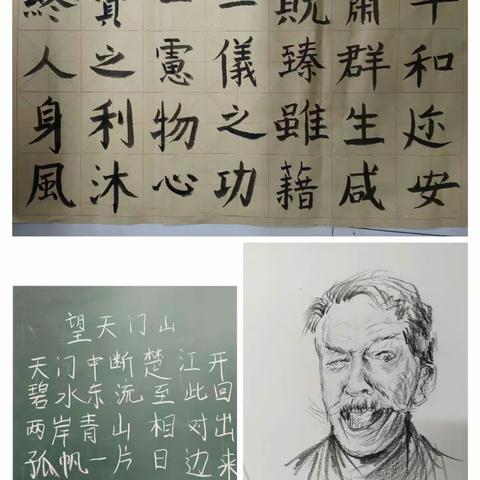 平和迩安
肅群生咸
貺臻雖藉
二儀之功
一慮物心
資之利沐
終人身風
望天门山
天门中断楚江开
碧水东流至此回
两岸青山相对出
孤帆一片日边来